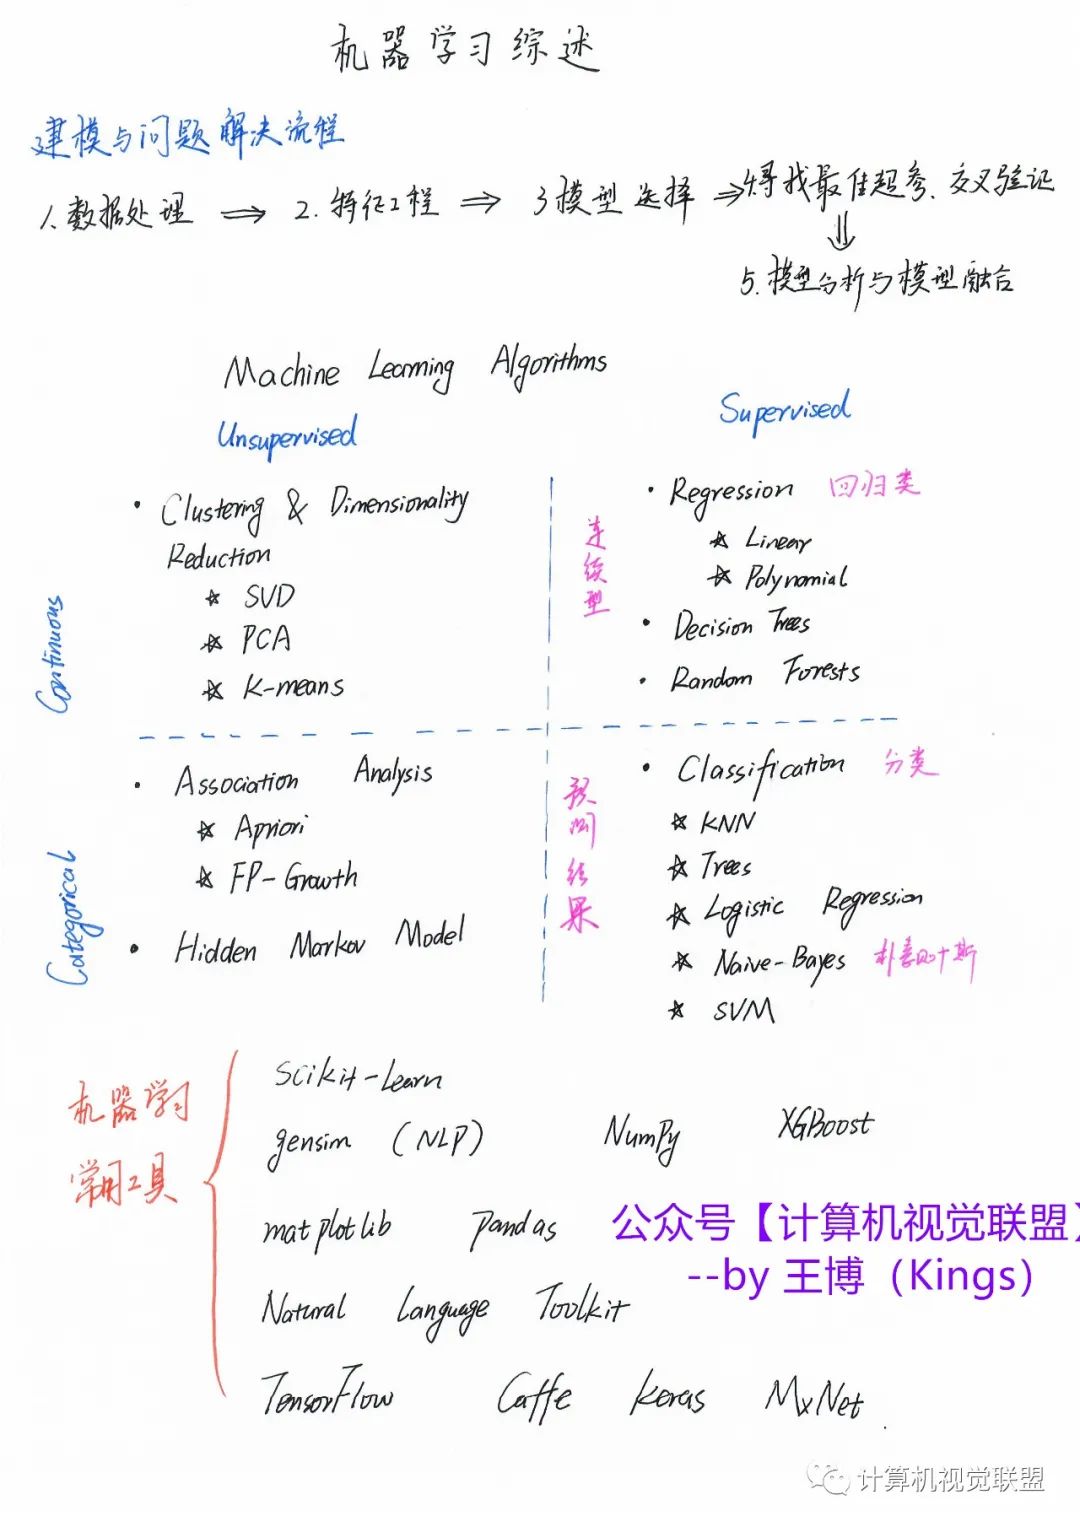 机器学习综述
建模与问题解决流程
1.数据处理 ⇒ 2.特征工程 ⇒ 3模型选择 ⇒ 寻找最佳超参、交叉验证
⇓
5.模型分析与模型融合
Machine Learning Algorithms
Unsupervised
Supervised
Continuous
• Clustering & Dimensionality
Reduction
☆ SVD
☆ PCA
☆ K-means
连续型
• Regression 回归类
☆ Linear
☆ Polynomial
• Decision Trees
• Random Forests
Categorical
• Association Analysis
☆ Apriori
☆ FP-Growth
• Hidden Markov Model
预测结果
• Classification 分类
☆ KNN
☆ Trees
☆ Logistic Regression
☆ Naive-Bayes 朴素贝叶斯
☆ SVM
机器学习
常用工具
Scikit-Learn
gensim (NLP) NumPy XGBoost
matplotlib Pandas
Natural Language Toolkit
TensorFlow Caffe Keras MxNet.
公众号【计算机视觉联盟】
--by 王博（Kings）
计算机视觉联盟